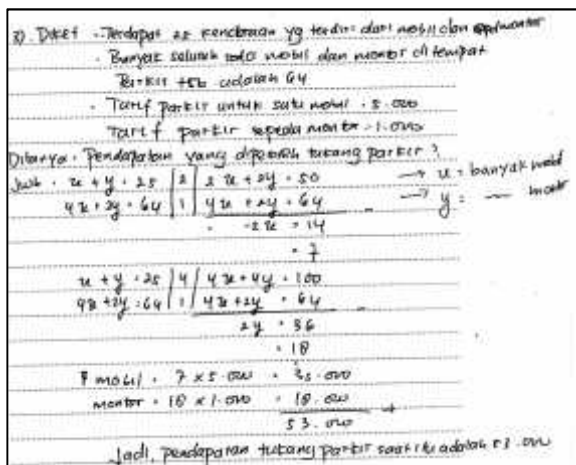 3). Diket : Terdapat 25 kendaraan yg terdiri dari mobil dan
- Banyak seluruh roda mobil dan montor ditempat
Parkir tsb adalah 64
- Tarif parkir untuk satu mobil : 5.000
Tarif parkir sepeda montor : 1.000
Ditanya : Pendapatan yang diperoleh tukang parkir ?
Jwb : x + y = 25 | 2 | 2x + 2y = 50 → x = banyak mobil
4x + 2y = 64 | 1 | 4x + 2y = 64 - → y = — montor
= -2x = 14
= 7
x + y = 25 | 4 | 4x + 4y = 100
4x + 2y = 64 | 1 | 4x + 2y = 64 -
2y = 36
= 18
P mobil = 7 x 5.000 = 35.000
montor = 18 x 1.000 = 18.000 +
53.000
Jadi, pendapatan tukang parkir saat itu adalah 53.000